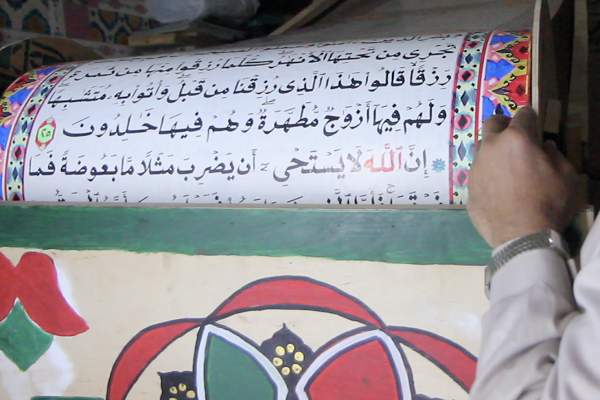 تَجْرِى مِن تَحْتِهَا ٱلْأَنْهَٰرُ كُلَّمَا رُزِقُوا۟ مِنْهَا مِن ثَمَرَةٍ
رِّزْقًا قَالُوا۟ هَٰذَا ٱلَّذِى رُزِقْنَا مِن قَبْلُ وَأُتُوا۟ بِهِۦ مُتَشَٰبِهًا
وَلَهُمْ فِيهَآ أَزْوَٰجٌ مُّطَهَّرَةٌ وَهُمْ فِيهَا خَٰلِدُونَ ٢٥
إِنَّ ٱللَّهَ لَا يَسْتَحْىِۦٓ أَن يَضْرِبَ مَثَلًا مَّا بَعُوضَةً فَمَا